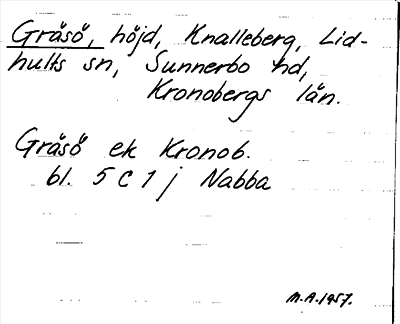 Gräsö, höjd, Knalleberg, Lid-
hults sn, Sunnerbo hd,
Kronobergs län.
Gräsö ek Kronob.
bl. 5 C 1 j Nabba
M.A. 1957.